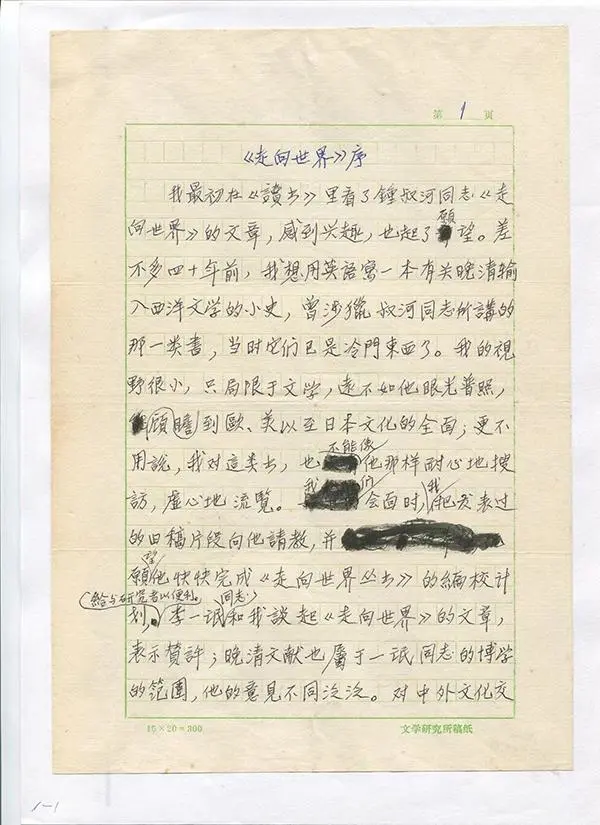 第 1 页
《走向世界》序
我最初在《讀书》里看了鍾叔河同志《走
願
向世界》的文章，感到兴趣，也起了望。差
不多四十年前，我想用英語寫一本有关晚清输
入西洋文学的小史，曾涉獵叔河同志所講的
那一类書，当时它们已是冷門東西了。我的視
野很小，只局限于文学，遠不如他眼光普照，
顧瞻到歐、美以至日本文化的全面；更不
不能像
用說，我对這类书，也他那样耐心地搜
我们
我
訪，虚心地流覽。会面时，把发表过
的旧稿片段向他請教，并
望
願他快快完成《走向世界丛书》的編校计
給与研究者以便利。
同志
划，李一氓和我談起《走向世界》的文章，
表示贊許；晚清文献也屬于一氓同志的博学
的範圍，他的意見不同泛泛。对中外文化交
15×20=300
文学研究所稿纸
1-1